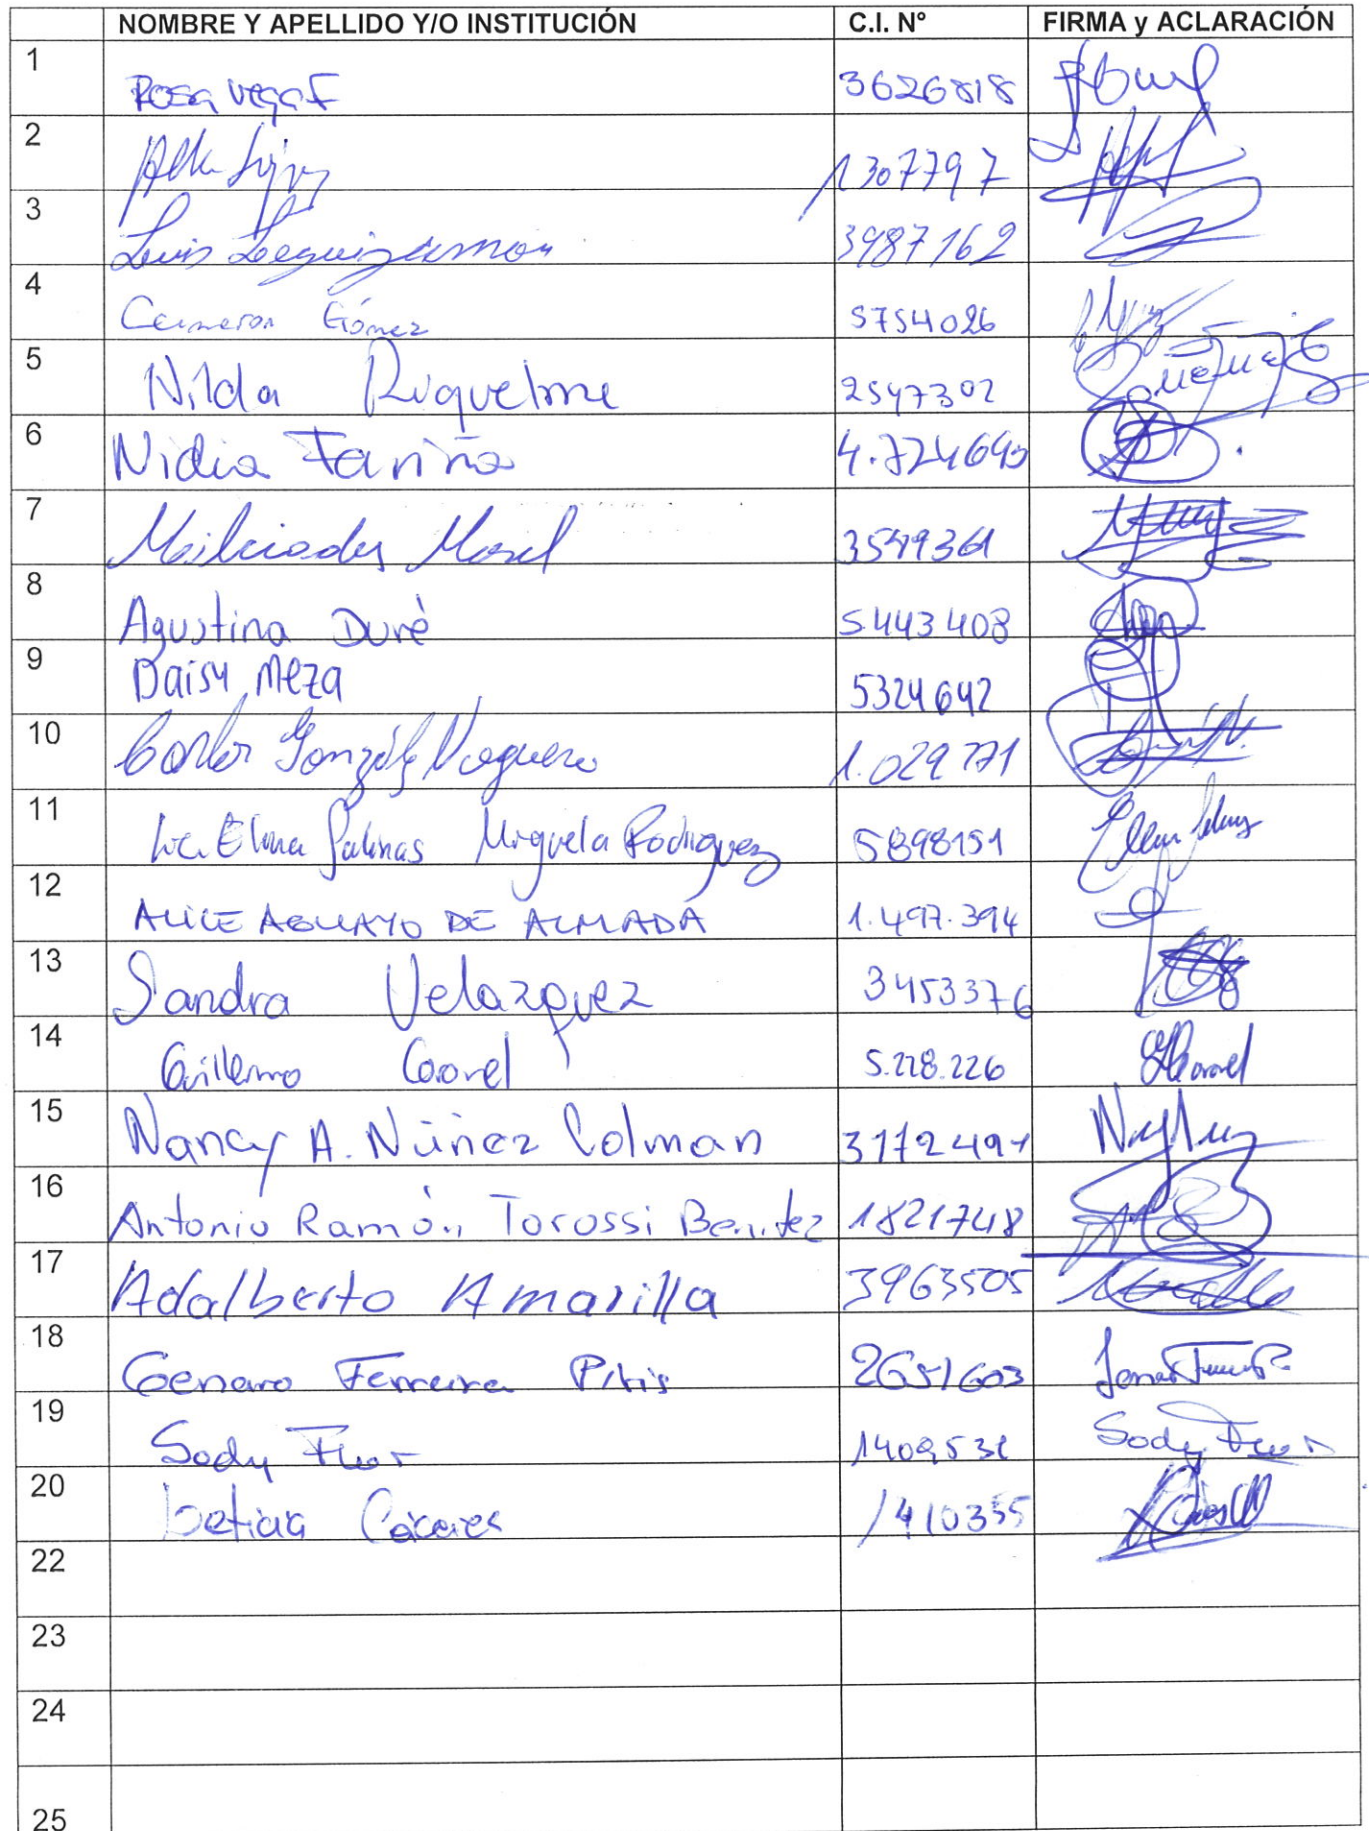 NOMBRE Y APELLIDO Y/O INSTITUCIÓN C.I. Nº FIRMA y ACLARACIÓN
1 Rosa Vega F 3626818
2 1307797
3 Luis Leguizamon 3987162
4 Cameron Gómez 5754026
5 Nilda Riquelme 2547302
6 Nidia Fariña
7 Milciades Morel
8 Agustina Duré 5443408
9 Daisy Meza 5324642
10 Carlos González Noguera 1.029771
11 Lic. Elena Salinas Miguela Rodriguez 5898151
12 ALICE AGUAYO DE ALMADA 1.497.394
13 Sandra Velazquez 3453376
14 Guillermo Coronel 5.228.226
15 Nancy A. Núñez Colman 3172491
16 Antonio Ramón Torossi Benitez 1821748
17 Adalberto Amarilla 3963505
18 Genaro Ferreira Piris 2651603
19 Sody Flor
20 Leticia Cáceres 1410355
22
23
24
25